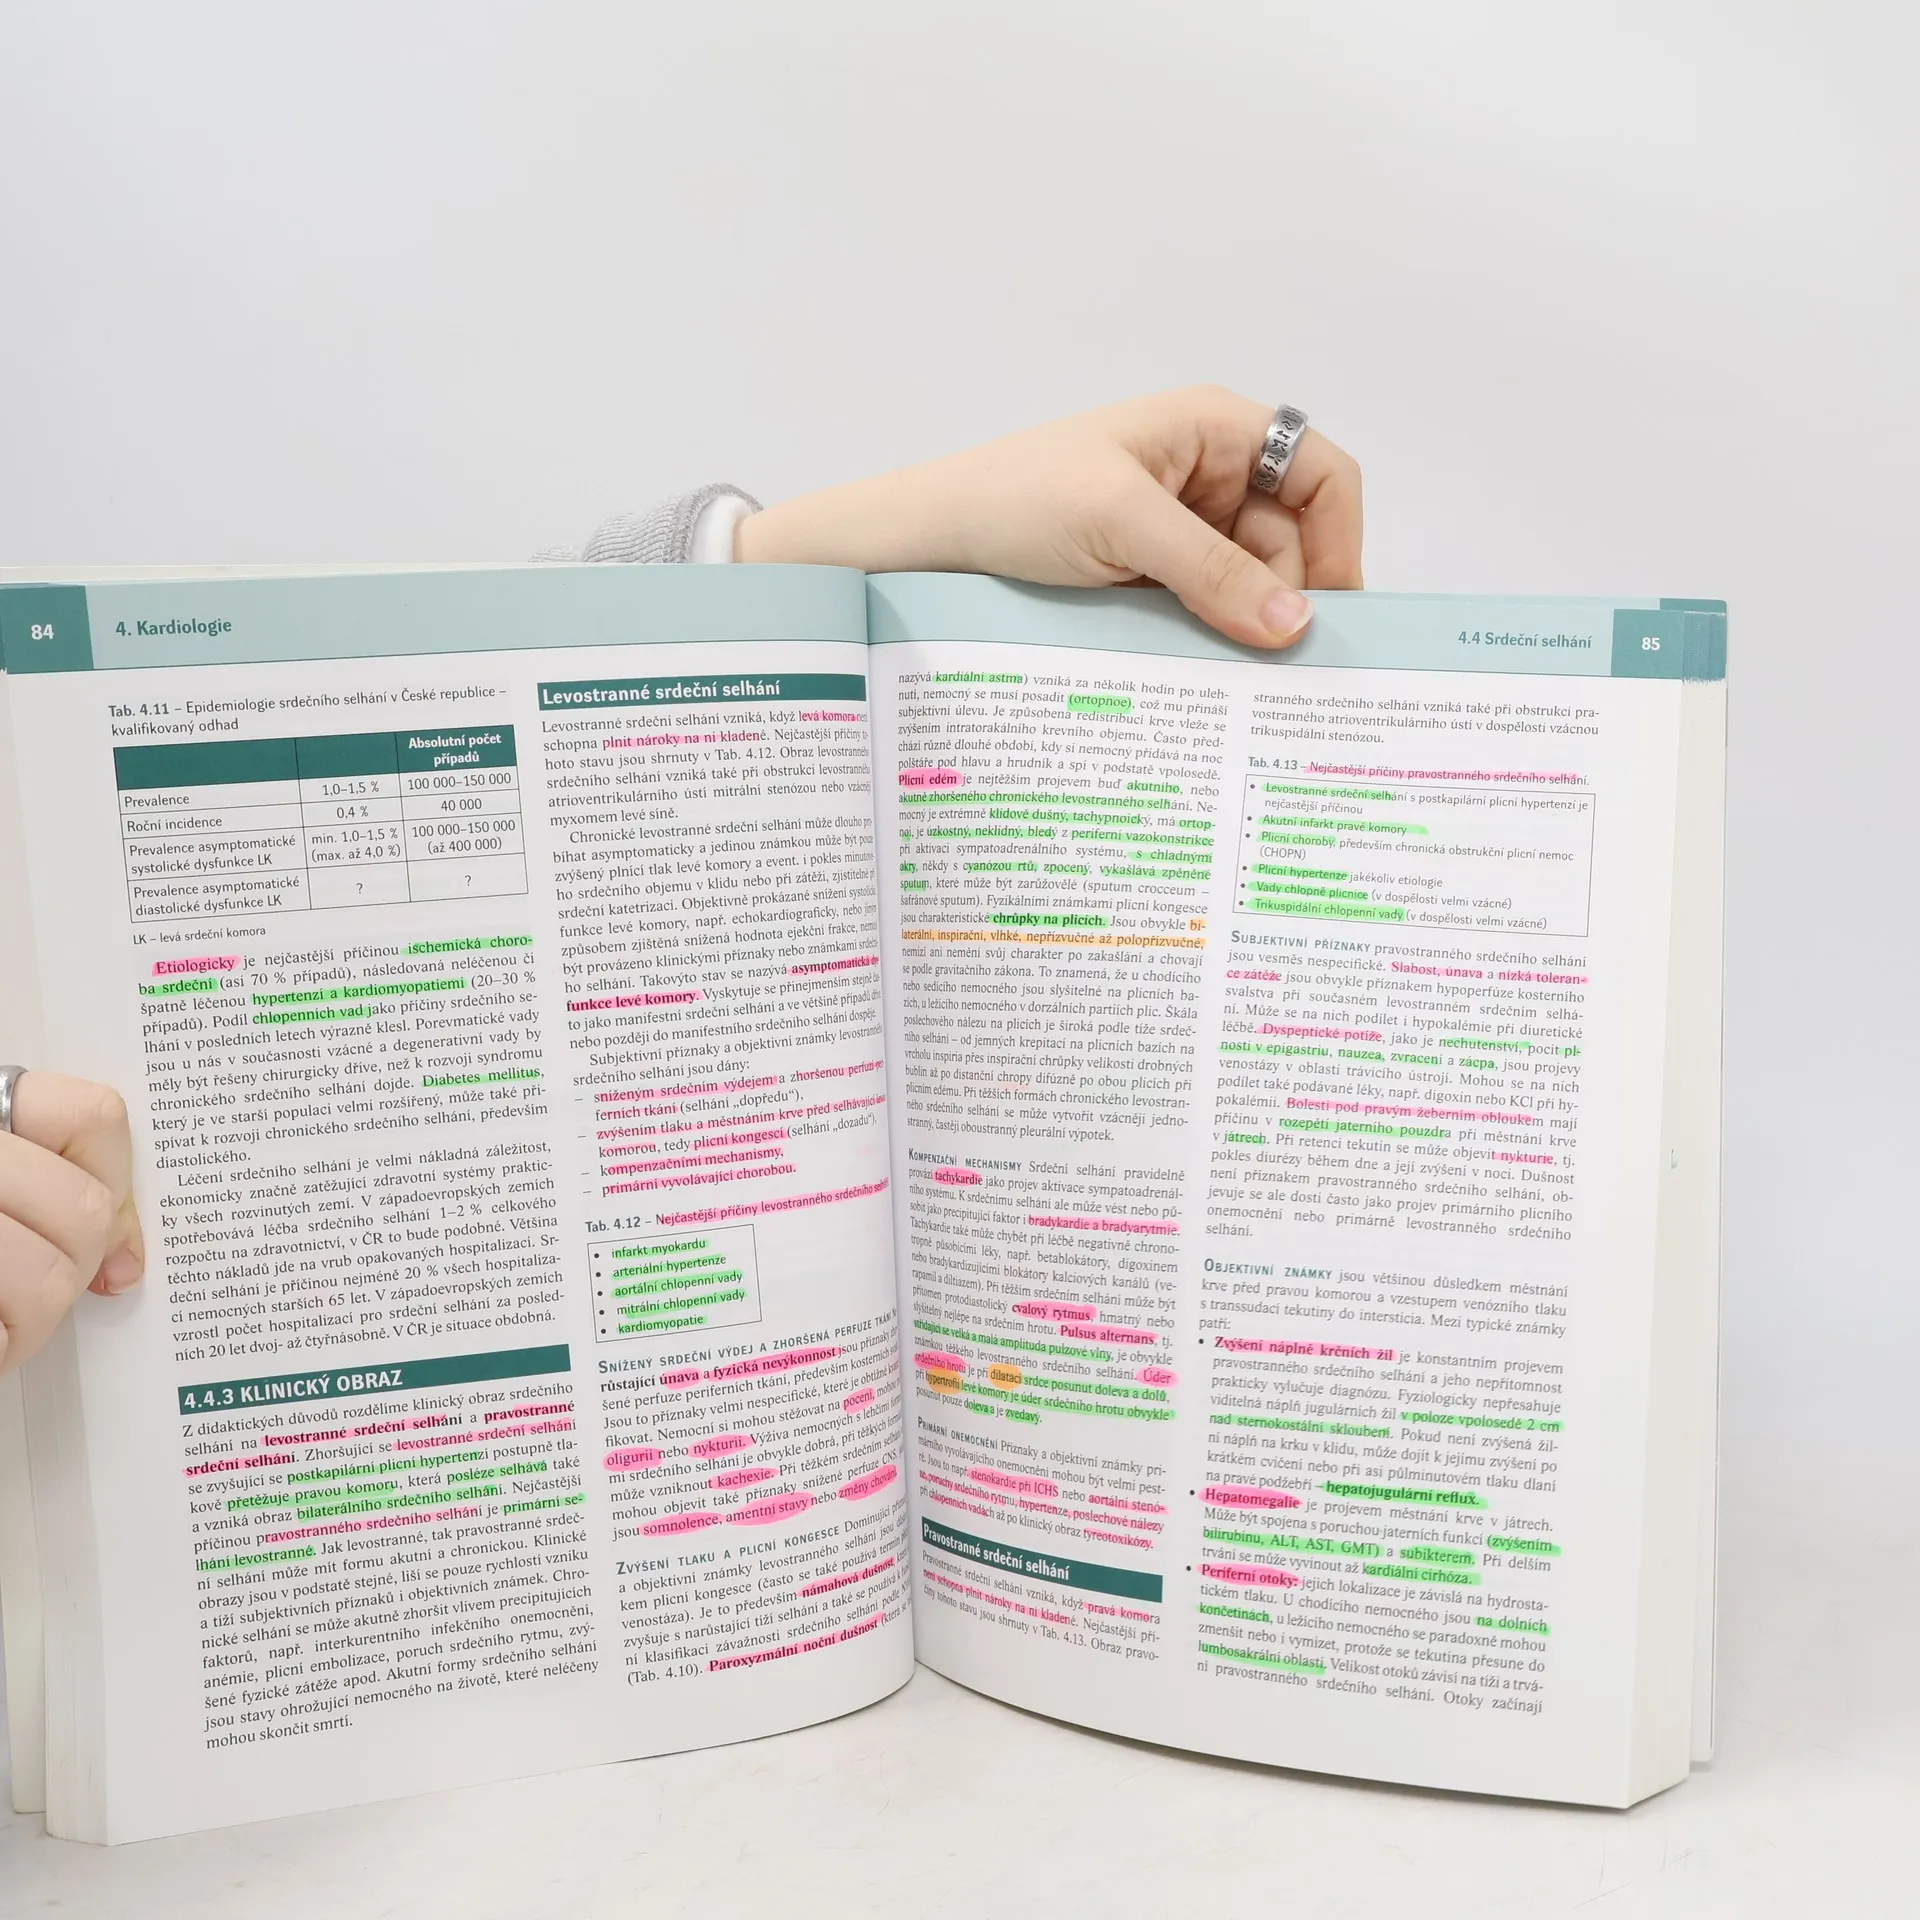 84
4. Kardiologie
Tab. 4.11 – Epidemiologie srdečního selhání v České republice –
kvalifikovaný odhad
Absolutní počet
případů
Prevalence
1,0–1,5 %
100 000–150 000
Roční incidence
0,4 %
40 000
Prevalence asymptomatické
systolické dysfunkce LK
min. 1,0–1,5 %
(max. až 4,0 %)
100 000–150 000
(až 400 000)
Prevalence asymptomatické
diastolické dysfunkce LK
?
?
LK – levá srdeční komora
Etiologicky je nejčastější příčinou ischemická choro-
ba srdeční (asi 70 % případů), následovaná neléčenou či
špatně léčenou hypertenzí a kardiomyopatiemi (20–30 %
případů). Podíl chlopenních vad jako příčiny srdečního se-
lhání v posledních letech výrazně klesl. Porevmatické vady
jsou u nás v současnosti vzácné a degenerativní vady by
měly být řešeny chirurgicky dříve, než k rozvoji syndromu
chronického srdečního selhání dojde. Diabetes mellitus,
který je ve starší populaci velmi rozšířený, může také při-
spívat k rozvoji chronického srdečního selhání, především
diastolického.
Léčení srdečního selhání je velmi nákladná záležitost,
ekonomicky značně zatěžující zdravotní systémy praktic-
ky všech rozvinutých zemí. V západoevropských zemích
spotřebovává léčba srdečního selhání 1–2 % celkového
rozpočtu na zdravotnictví, v ČR to bude podobné. Většina
těchto nákladů jde na vrub opakovaných hospitalizací. Sr-
deční selhání je příčinou nejméně 20 % všech hospitaliza-
cí nemocných starších 65 let. V západoevropských zemích
vzrostl počet hospitalizací pro srdeční selhání za posled-
ních 20 let dvoj- až čtyřnásobně. V ČR je situace obdobná.
4.4.3 KLINICKÝ OBRAZ
Z didaktických důvodů rozdělíme klinický obraz srdečního
selhání na levostranné srdeční selhání a pravostranné
srdeční selhání. Zhoršující se levostranné srdeční selhání
se zvyšující se postkapilární plicní hypertenzí postupně tla-
kově přetěžuje pravou komoru, která posléze selhává také
a vzniká obraz bilaterálního srdečního selhání. Nejčastější
příčinou pravostranného srdečního selhání je primární se-
lhání levostranné. Jak levostranné, tak pravostranné srdeč-
ní selhání může mít formu akutní a chronickou. Klinické
obrazy jsou v podstatě stejné, liší se pouze rychlostí vzniku
a tíží subjektivních příznaků i objektivních známek. Chro-
nické selhání se může akutně zhoršit vlivem precipitujících
faktorů, např. interkurentního infekčního onemocnění,
anémie, plicní embolizace, poruch srdečního rytmu, zvý-
šené fyzické zátěže apod. Akutní formy srdečního selhání
jsou stavy ohrožující nemocného na životě, které neléčeny
mohou skončit smrtí.
Levostranné srdeční selhání
Levostranné srdeční selhání vzniká, když levá komora není
schopna plnit nároky na ni kladené. Nejčastější příčiny to-
hoto stavu jsou shrnuty v Tab. 4.12. Obraz levostranného
srdečního selhání vzniká také při obstrukci levostranného
atrioventrikulárního ústí mitrální stenózou nebo vzácněji
myxomem levé síně.
Chronické levostranné srdeční selhání může dlouho pro-
bíhat asymptomaticky a jedinou známkou může být pouze
zvýšený plnící tlak levé komory a event. i pokles minutové-
ho srdečního objemu v klidu nebo při zátěži, zjistitelné při
srdeční katetrizaci. Objektivně prokázané snížení systolické
funkce levé komory, např. echokardiograficky, nebo jiným
způsobem zjištěná snížená hodnota ejekční frakce, nemusí
být provázeno klinickými příznaky nebo známkami srdeční-
ho selhání. Takovýto stav se nazývá asymptomatická dys-
funkce levé komory. Vyskytuje se přinejmenším stejně čas-
to jako manifestní srdeční selhání a ve většině případů dříve
nebo později do manifestního srdečního selhání dospěje.
Subjektivní příznaky a objektivní známky levostranného
srdečního selhání jsou dány:
– sníženým srdečním výdejem a zhoršenou perfuzí peri-
ferních tkání (selhání „dopředu“),
– zvýšením tlaku a městnáním krve před selhávající levou
komorou, tedy plicní kongescí (selhání „dozadu“),
– kompenzačními mechanismy,
– primární vyvolávající chorobou.
Tab. 4.12 – Nejčastější příčiny levostranného srdečního selhání
• infarkt myokardu
• arteriální hypertenze
• aortální chlopenní vady
• mitrální chlopenní vady
• kardiomyopatie
SNÍŽENÝ SRDEČNÍ VÝDEJ A ZHORŠENÁ PERFUZE TKÁNÍ
růstající únava a fyzická nevýkonnost jsou příznaky
šené perfuze periferních tkání, především kosterních
Jsou to příznaky velmi nespecifické, které je obtížné
fikovat. Nemocní si mohou stěžovat na pocení, mohou
oligurii nebo nykturii. Výživa nemocných s lehčími
mi srdečního selhání je obvykle dobrá, při těžkých
může vzniknout kachexie. Při těžkém srdečním selhání
mohou objevit také příznaky snížené perfuze CNS,
jsou somnolence, amentní stavy nebo změny chování.
ZVÝŠENÍ TLAKU A PLICNÍ KONGESCE Dominující
a objektivní známky levostranného selhání jsou
kem plicní kongesce (často se také používá termín
venostáza). Je to především námahová dušnost,
zvyšuje s narůstající tíží selhání a také se používá k
ní klasifikaci závažnosti srdečního selhání podle
(Tab. 4.10). Paroxyzmální noční dušnost (která se
4.4 Srdeční selhání
85
nazývá kardiální astma) vzniká za několik hodin po uleh-
nutí, nemocný se musí posadit (ortopnoe), což mu přináší
subjektivní úlevu. Je způsobena redistribucí krve vleže se
zvýšením intratorakálního krevního objemu. Často před-
chází různě dlouhé období, kdy si nemocný přidává na noc
polštáře pod hlavu a hrudník a spí v podstatě vpolosedě.
Plicní edém je nejtěžším projevem buď akutního, nebo
akutně zhoršeného chronického levostranného selhání. Ne-
mocný je extrémně klidově dušný, tachypnoický, má ortop-
noi, je úzkostný, neklidný, bledý z periferní vazokonstrikce
při aktivaci sympatoadrenálního systému, s chladnými
akry, někdy s cyanózou rtů, zpocený, vykašlává zpěněné
sputum, které může být zarůžovělé (sputum crocceum –
šafránové sputum). Fyzikálními známkami plicní kongesce
jsou charakteristické chrůpky na plicích. Jsou obvykle bi-
laterální, inspirační, vlhké, nepřízvučné až polopřízvučné,
nemizí ani nemění svůj charakter po zakašlání a chovají
se podle gravitačního zákona. To znamená, že u chodícího
nebo sedícího nemocného jsou slyšitelné na plicních ba-
zích, u ležícího nemocného v dorzálních partiích plic. Škála
poslechového nálezu na plicích je široká podle tíže srdeč-
ního selhání – od jemných krepitací na plicních bazích na
vrcholu inspiria přes inspirační chrůpky velikosti drobných
bublin až po distanční chropy difúzně po obou plicích při
plicním edému. Při těžších formách chronického levostran-
ného srdečního selhání se může vytvořit vzácněji jedno-
stranný, častěji oboustranný pleurální výpotek.
KOMPENZAČNÍ MECHANISMY Srdeční selhání pravidelně
provází tachykardie jako projev aktivace sympatoadrenál-
ního systému. K srdečnímu selhání ale může vést nebo pů-
sobit jako precipitující faktor i bradykardie a bradyarytmie.
Tachykardie také může chybět při léčbě negativně chrono-
tropně působícími léky, např. betablokátory, digoxinem
nebo bradykardizujícími blokátory kalciových kanálů (ve-
rapamil a diltiazem). Při těžším srdečním selhání může být
přítomen protodiastolický cvalový rytmus, hmatný nebo
slyšitelný nejlépe na srdečním hrotu. Pulsus alternans, tj.
střídající se velká a malá amplituda pulzové vlny, je obvykle
známkou těžkého levostranného srdečního selhání. Úder
srdečního hrotu je při dilataci srdce posunut doleva a dolů,
při hypertrofii levé komory je úder srdečního hrotu obvykle
posunut pouze doleva a je zvedavý.
PRIMÁRNÍ ONEMOCNĚNÍ Příznaky a objektivní známky pri-
márního vyvolávajícího onemocnění mohou být velmi pest-
ré. Jsou to např. stenokardie při ICHS nebo aortální stenó-
ze, poruchy srdečního rytmu, hypertenze, poslechové nálezy
při chlopenních vadách až po klinický obraz tyreotoxikózy.
Pravostranné srdeční selhání
Pravostranné srdeční selhání vzniká, když pravá komora
není schopna plnit nároky na ni kladené. Nejčastější pří-
činy tohoto stavu jsou shrnuty v Tab. 4.13. Obraz pravo-
stranného srdečního selhání vzniká také při obstrukci pra-
vostranného atrioventrikulárního ústí v dospělosti vzácnou
trikuspidální stenózou.
Tab. 4.13 – Nejčastější příčiny pravostranného srdečního selhání.
• Levostranné srdeční selhání s postkapilární plicní hypertenzí je
nejčastější příčinou
• Akutní infarkt pravé komory
• Plicní choroby, především chronická obstrukční plicní nemoc
(CHOPN)
• Plicní hypertenze jakékoliv etiologie
• Vady chlopně plicnice (v dospělosti velmi vzácné)
• Trikuspidální chlopenní vady (v dospělosti velmi vzácné)
SUBJEKTIVNÍ PŘÍZNAKY pravostranného srdečního selhání
jsou vesměs nespecifické. Slabost, únava a nízká toleran-
ce zátěže jsou obvykle příznakem hypoperfúze kosterního
svalstva při současném levostranném srdečním selhá-
ní. Může se na nich podílet i hypokalémie při diuretické
léčbě. Dyspeptické potíže, jako je nechutenství, pocit pl-
nosti v epigastriu, nauzea, zvracení a zácpa, jsou projevy
venostázy v oblasti trávicího ústrojí. Mohou se na nich
podílet také podávané léky, např. digoxin nebo KCl při hy-
pokalémii. Bolesti pod pravým žeberním obloukem mají
příčinu v rozepětí jaterního pouzdra při městnání krve
v játrech. Při retenci tekutin se může objevit nykturie, tj.
pokles diurézy během dne a její zvýšení v noci. Dušnost
není příznakem pravostranného srdečního selhání, ob-
jevuje se ale dosti často jako projev primárního plicního
onemocnění nebo primárně levostranného srdečního
selhání.
OBJEKTIVNÍ ZNÁMKY jsou většinou důsledkem městnání
krve před pravou komorou a vzestupem venózního tlaku
s transsudací tekutiny do intersticia. Mezi typické známky
patří:
• Zvýšení náplně krčních žil je konstantním projevem
pravostranného srdečního selhání a jeho nepřítomnost
prakticky vylučuje diagnózu. Fyziologicky nepřesahuje
viditelná náplň jugulárních žil v poloze vpolosedě 2 cm
nad sternokostální skloubení. Pokud není zvýšená žil-
ní náplň na krku v klidu, může dojít k jejímu zvýšení po
krátkém cvičení nebo při asi půlminutovém tlaku dlaní
na pravé podžebří – hepatojugulární reflux.
• Hepatomegalie je projevem městnání krve v játrech.
Může být spojena s poruchou jaterních funkcí (zvýšením
bilirubinu, ALT, AST, GMT) a subikterem. Při delším
trvání se může vyvinout až kardiální cirhóza.
• Periferní otoky: jejich lokalizace je závislá na hydrosta-
tickém tlaku. U chodícího nemocného jsou na dolních
končetinách, u ležícího nemocného se paradoxně mohou
zmenšit nebo i vymizet, protože se tekutina přesune do
lumbosakrální oblasti. Velikost otoků závisí na tíži a trvá-
ní pravostranného srdečního selhání. Otoky začínají